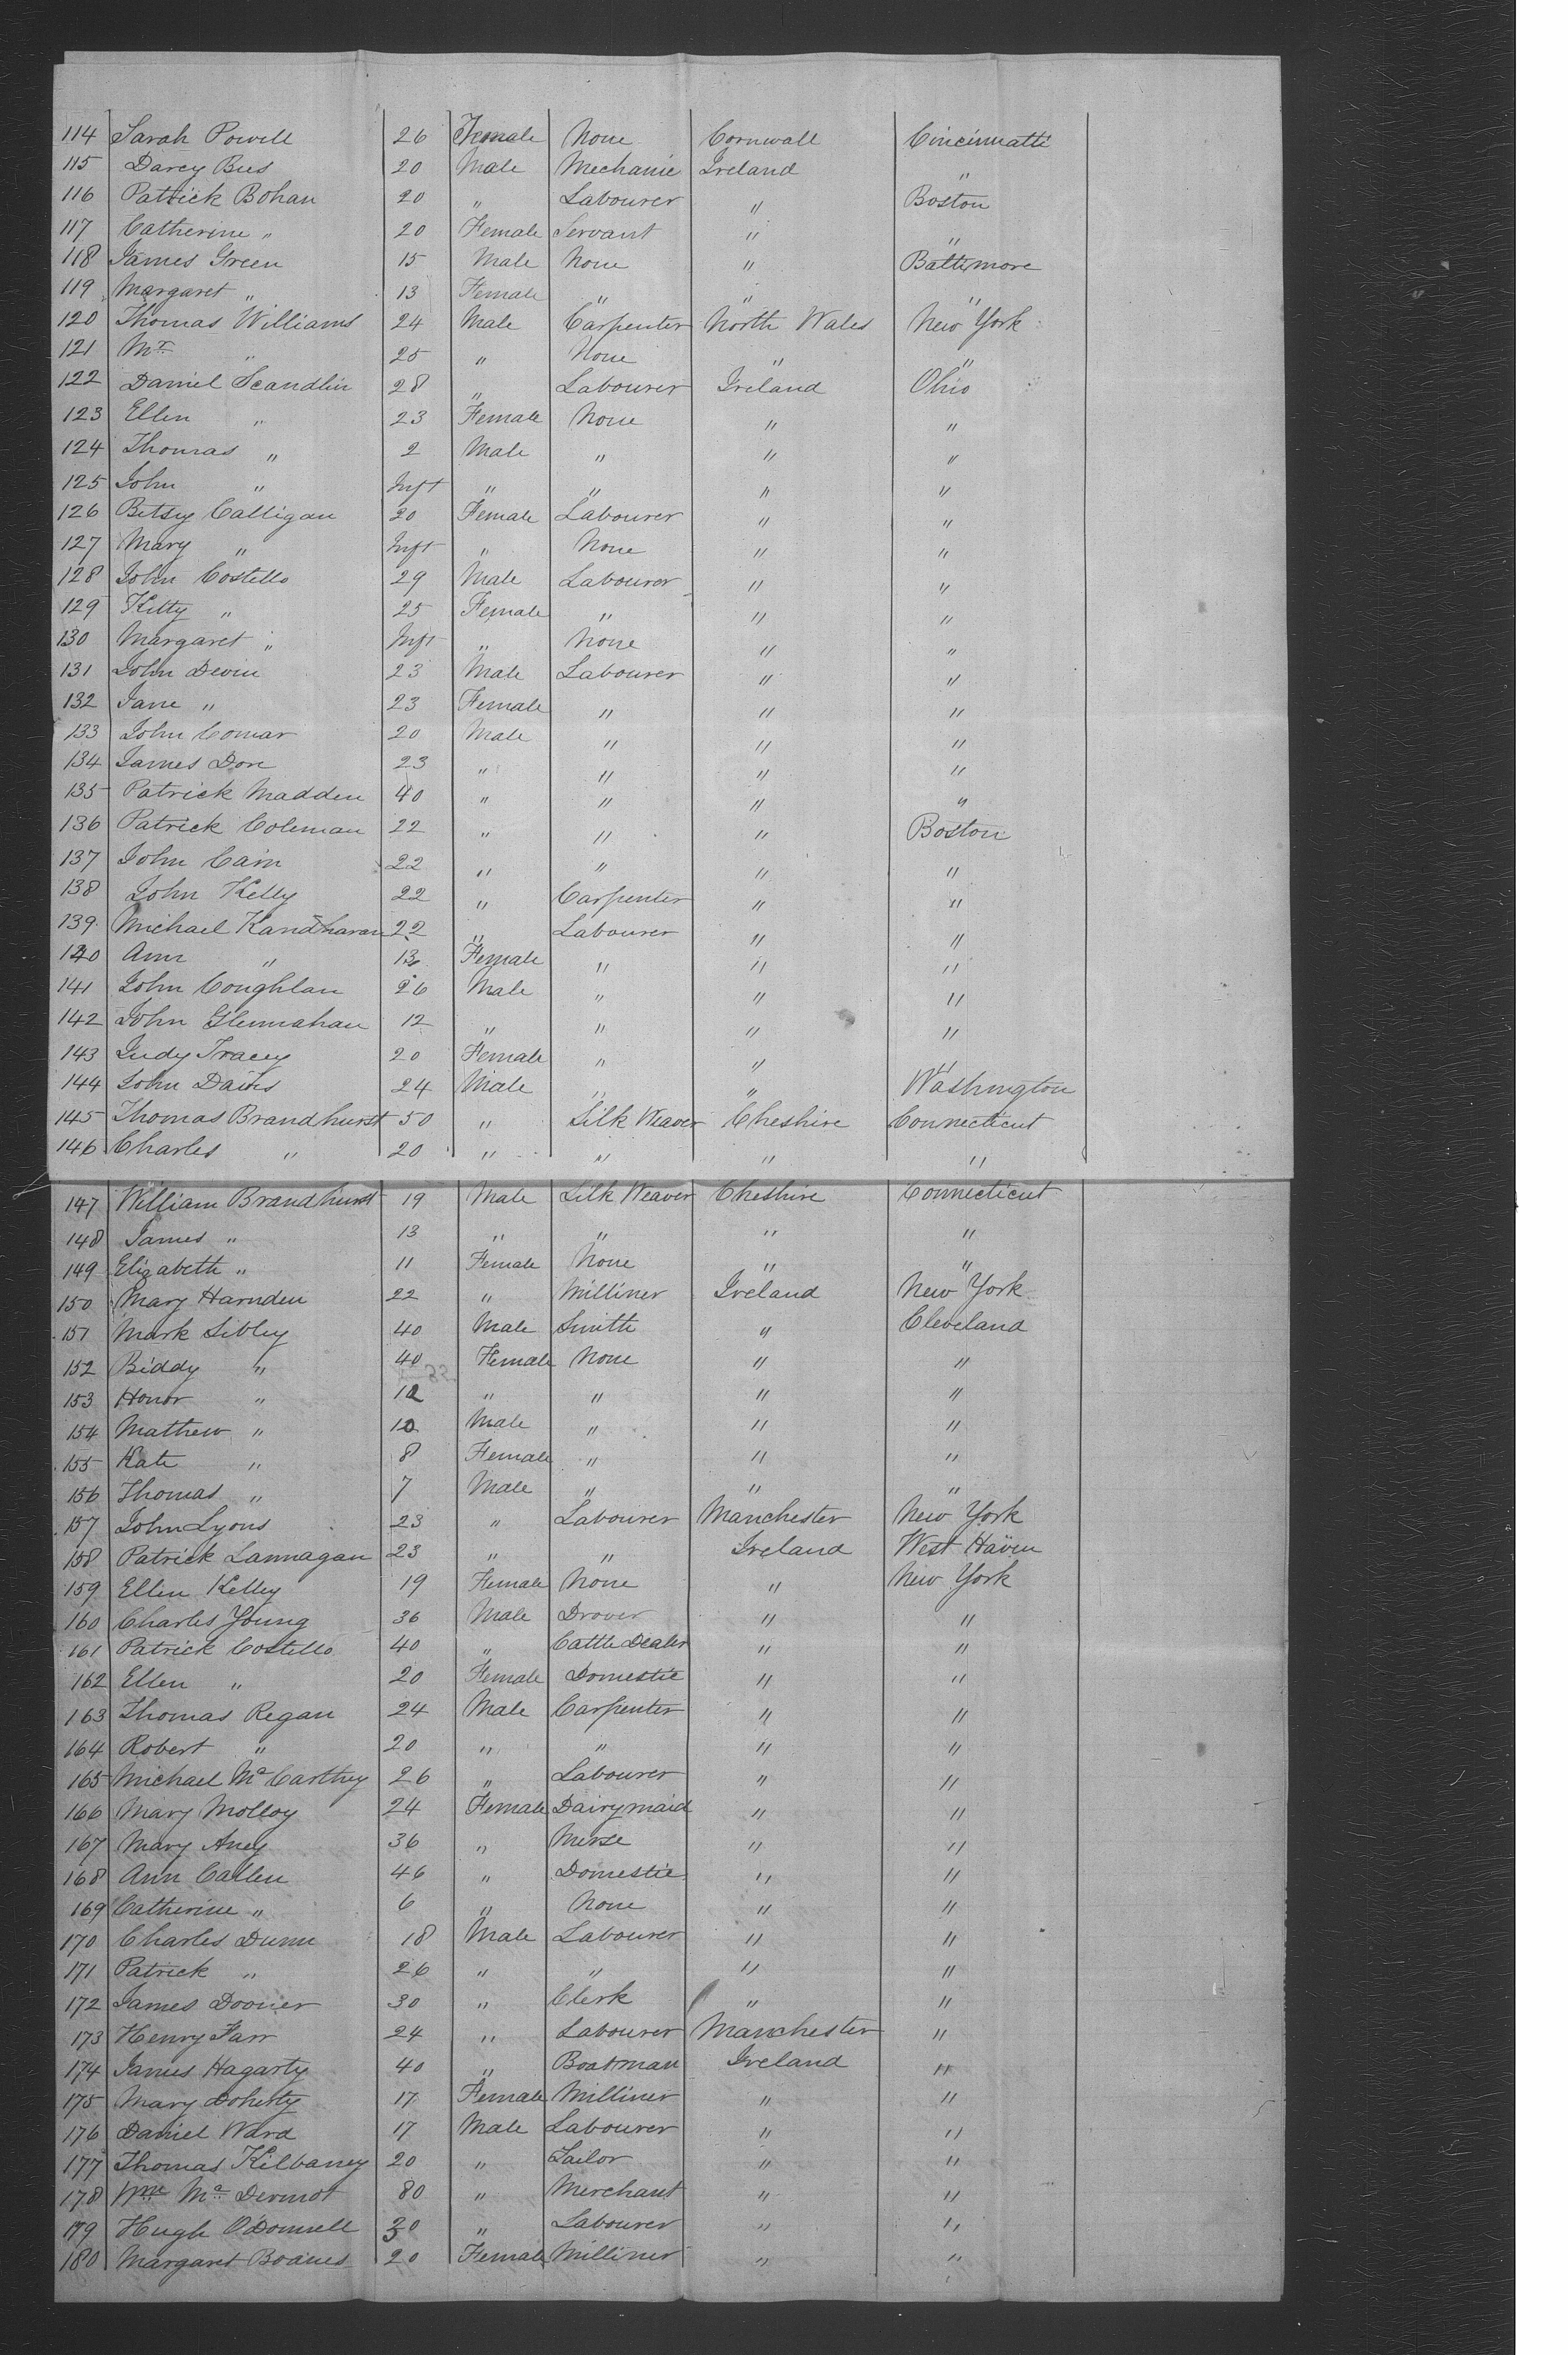 114 Sarah Powell 26 Female None Cornwall Cincinnatti
115 Darcy Bus 20 Male Mechanic Ireland "
116 Patrick Bohan 20 " Labourer " Boston
117 Catherine " 20 Female Servant " "
118 James Green 15 Male None " Baltimore
119 Margaret " 13 Female " " "
120 Thomas Williams 24 Male Carpenter North Wales New York
121 Mr " 25 " None " "
122 Daniel Scandlin 28 " Labourer Ireland Ohio
123 Ellen " 23 Female None " "
124 Thomas " 2 Male " " "
125 John " Inft " " " "
126 Betsy Calligan 20 Female Labourer " "
127 Mary " Inft " None " "
128 John Costello 29 Male Labourer " "
129 Kitty " 25 Female " " "
130 Margaret " Inft " None " "
131 John Devin 23 Male Labourer " "
132 Jane " 23 Female " " "
133 John Comar 20 Male " " "
134 James Dore 23 " " " "
135 Patrick Madden 40 " " " "
136 Patrick Coleman 22 " " " Boston
137 John Cain 22 " " " "
138 John Kelly 22 " Carpenter " "
139 Michael 22 " Labourer " "
140 Ann " 13 Female " " "
141 John Coughlan 26 Male " " "
142 John Glennahan 12 " " " "
143 Judy Tracey 20 Female " " "
144 John 24 Male " " Washington
145 Thomas Brandhurst 50 " Silk Weaver Cheshire Connecticut
146 Charles " 20 " " " "
147 William Brandhurst 19 Male Silk Weaver Cheshire Connecticut
148 James " 13 " " " "
149 Elizabeth " 11 Female None " "
150 Mary Harnden 22 " Milliner Ireland New York
151 Mark Sibley 40 Male Smith " Cleveland
152 Biddy " 40 Female None " "
153 Honor " 12 " " " "
154 Mathew " 10 Male " " "
155 Kate " 8 Female " " "
156 Thomas " 7 Male " " "
157 John Lyons 23 " Labourer Manchester New York
158 Patrick Lannagan 23 " " Ireland West Haven
159 Ellen Kelley 19 Female None " New York
160 Charles Young 36 Male Drover " "
161 Patrick Costello 40 " Cattle Dealer " "
162 Ellen " 20 Female Domestic " "
163 Thomas Regan 24 Male Carpenter " "
164 Robert " 20 " " " "
165 Michael Mc Carthy 26 " Labourer " "
166 Mary Molloy 24 Female Dairymaid " "
167 Mary Aney 36 " Nurse " "
168 Ann Callen 46 " Domestic " "
169 Catherine " 6 " None " "
170 Charles Dunn 18 Male Labourer " "
171 Patrick " 26 " " " "
172 James Dooner 30 " Clerk " "
173 Henry Farr 24 " Labourer Manchester "
174 James Hagarty 40 " Boatman Ireland "
175 Mary Doherty 17 Female Milliner " "
176 Daniel Ward 17 Male Labourer " "
177 Thomas Kilbaney 20 " Sailor " "
178 Wm Mc Dermot 80 " Merchant " "
179 Hugh O'Donnell 30 " Labourer " "
180 Margaret Boanes 20 Female Milliner " "